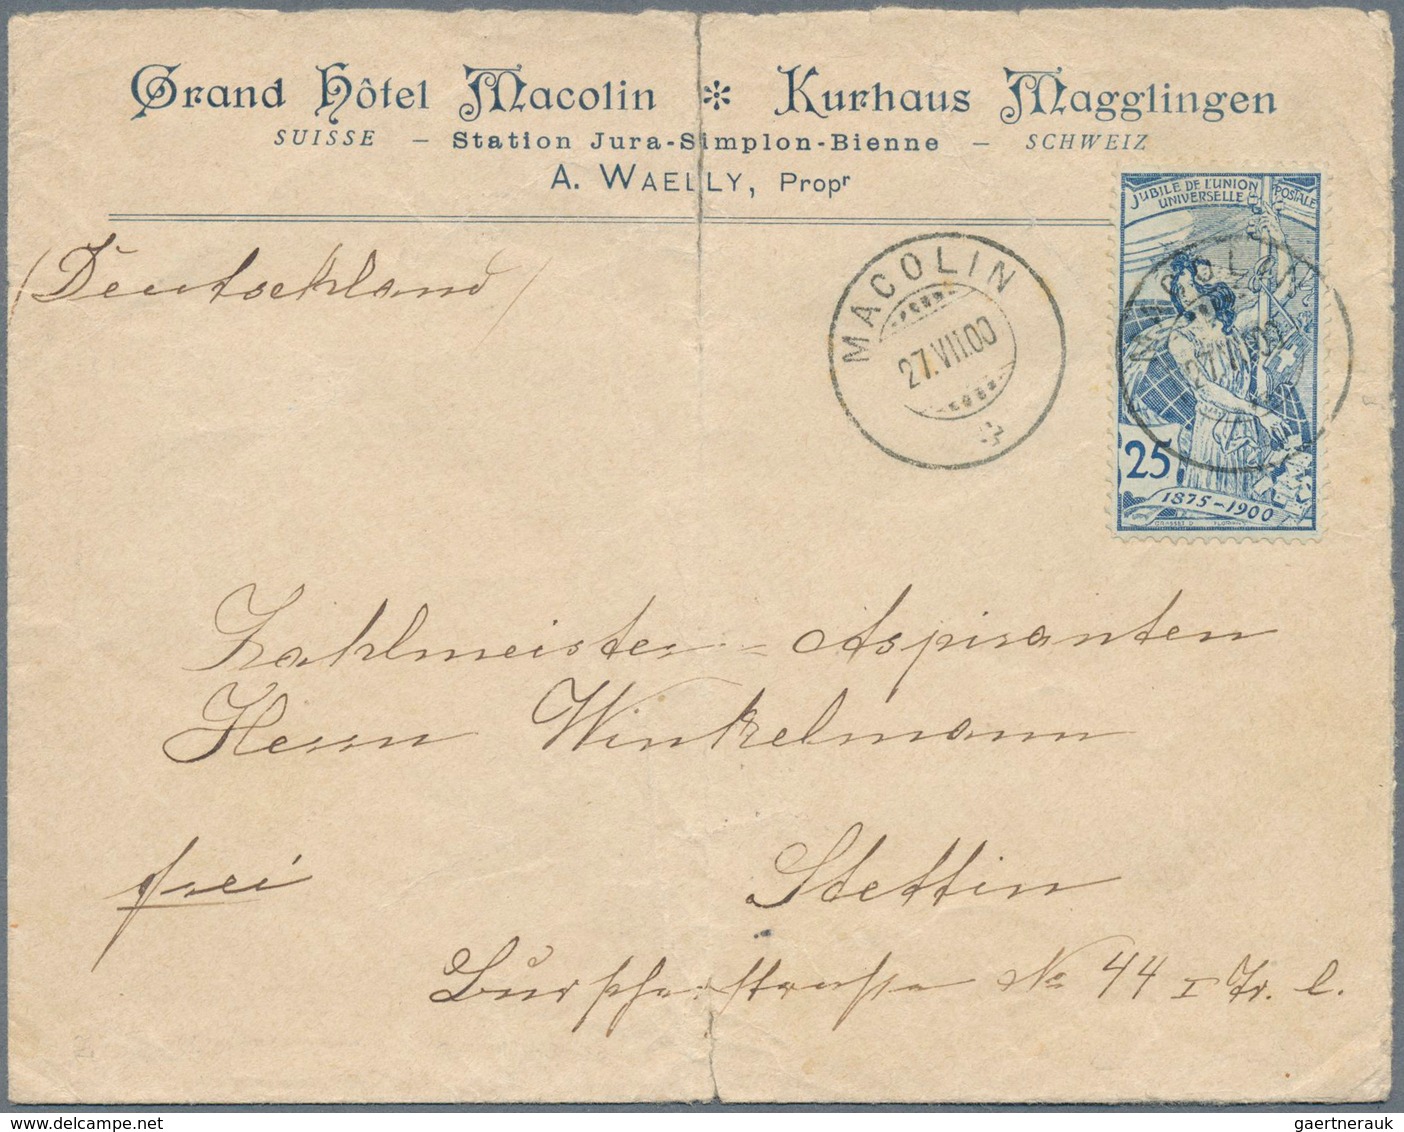 Grand Hôtel Macolin * Kurhaus Magglingen
SUISSE – Station Jura-Simplon-Bienne – SCHWEIZ
A. WAELLY, Propr
(Deutschland)
MACOLIN
27.VII.00
JUBILÉ DE L'UNION POSTALE
UNIVERSELLE
MACOLIN
27.VII.00
25
1875-1900
GRASSET D. FLORIAN
Zahlmeister-Aspiranten
Herrn Winkelmann
frei
Stettin
No 44 I Tr. l.
gaertnerauk